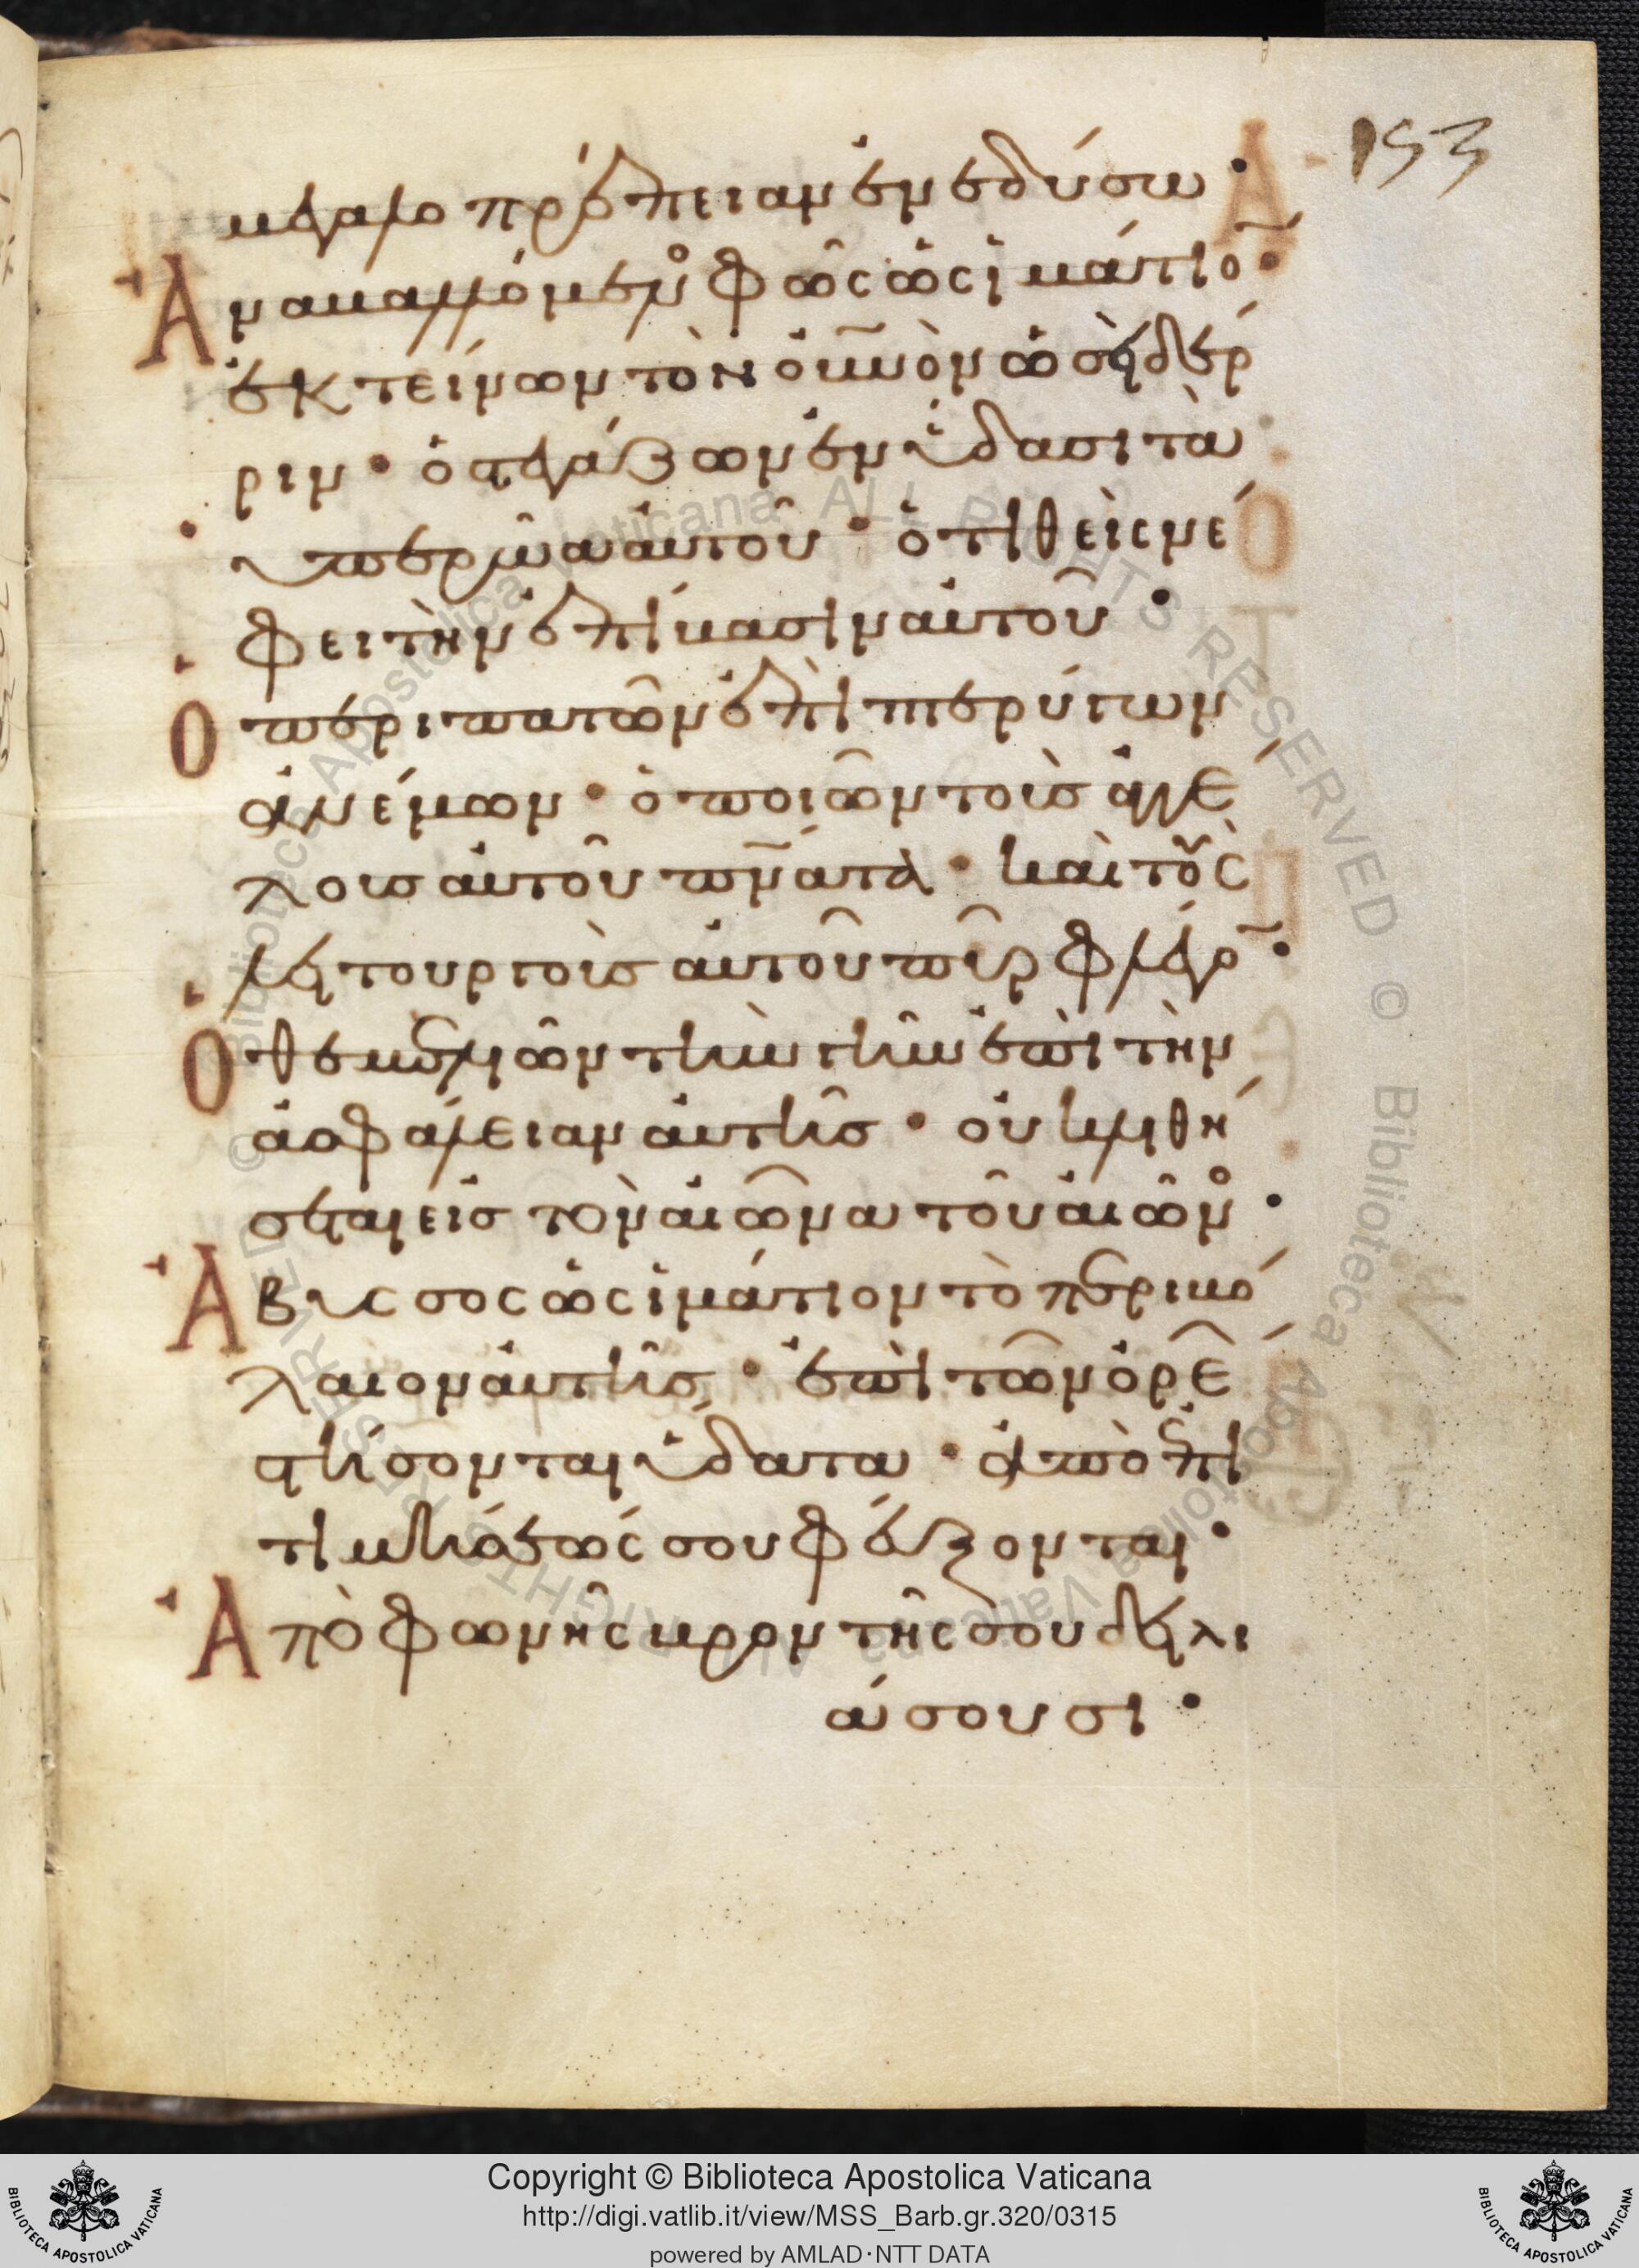 153
μεγαλοπρέπειαν ἐνεδύσω·
Ἀναβαλλόμενος φῶς ὡς ἱμάτιο̄·
ἐκτείνων τὸν οὐ̅νὸν ὡσεὶ δέρ
ριν· ὁ στεγάζων ἐν ὕδασι τὰ
ὑπερῶα αὐτοῦ· ὁ τιθεὶς νέ
φει τὴν ἐπίβασιν αὐτοῦ·
Ὁ περιπατῶν ἐπὶ πτερύγων
ἀνέμων· ὁ ποιῶν τοὺς ἀγγέ
λους αὐτοῦ πν̅ατα· καὶ τοὺς
λειτουργοὺς αὐτοῦ πῦρ φλέγο̄·
Ὁ θεμελιῶν τὴν γῆν ἐπὶ τὴν
ἀσφάλειαν αὐτῆς· οὐ κλιθή
σεται εἰς τὸν αἰῶνα τοῦ αἰῶνος·
Ἄβυσσος ὡς ἱμάτιον τὸ περιβό
λαιον αὐτῆς· ἐπὶ τῶν ὀρέ
στήσονται ὕδατα· ἀπὸ ἐπι
τιμήσεώς σου φεύξονται·
Ἀπὸ φωνῆς βροντῆς σου δειλι
άσουσι·
Copyright © Biblioteca Apostolica Vaticana
http://digi.vatlib.it/view/MSS_Barb.gr.320/0315
powered by AMLAD·NTT DATA
BIBLIOTECA APOSTOLICA VATICANA
BIBLIOTECA APOSTOLICA VATICANA